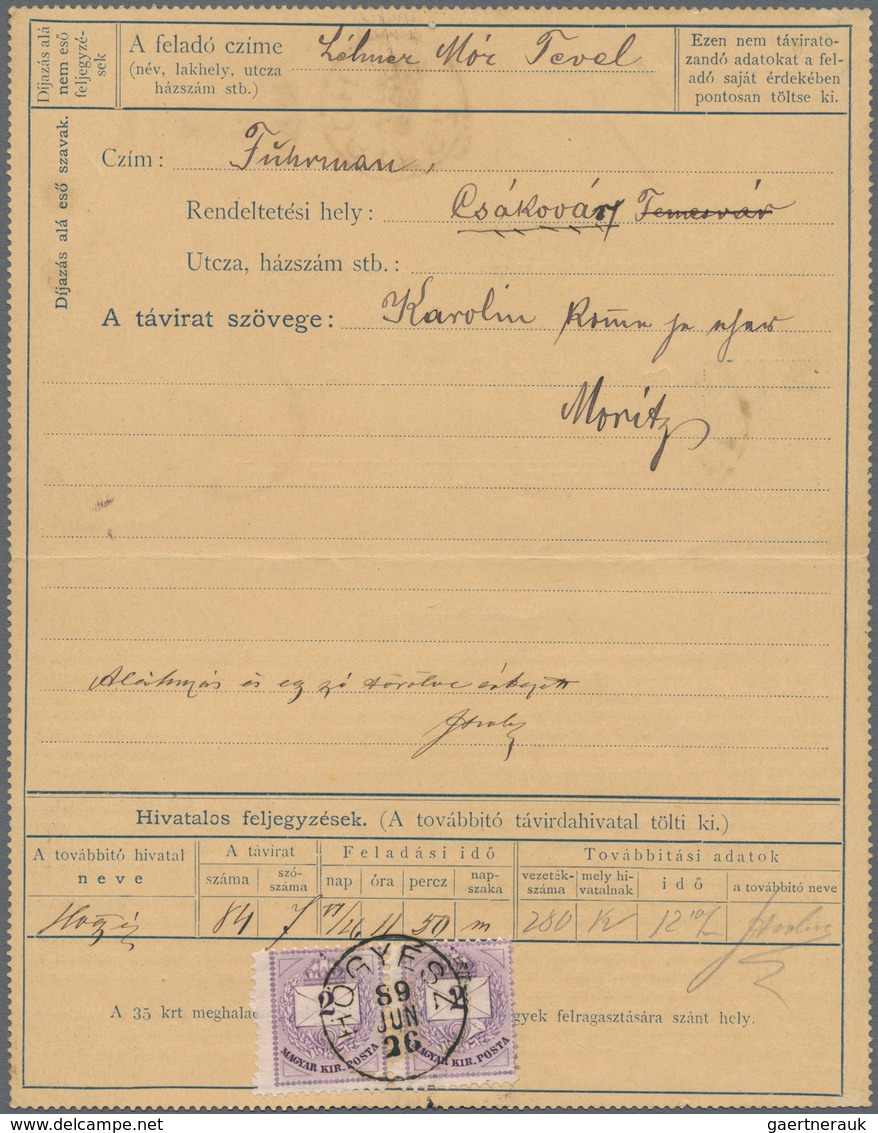 Díjazás alá
nem eső
feljegyzé-
sek
A feladó czíme
(név, lakhely, utcza
házszám stb.)
Léhner Mór Tevel
Ezen nem távirato-
zandó adatokat a fel-
adó saját érdekében
pontosan töltse ki.
Díjazás alá eső szavak.
Czím: Fuhrman,
Rendeltetési hely: Csákovár Temesvár
Utcza, házszám stb.:
A távirat szövege: Karolin kome je eher
Moritz
Aláhuzás és egy szó törölve érkezett
Hivatalos feljegyzések. (A továbbitó távirdahivatal tölti ki.)
A továbbitó hivatal
neve
A távirat
száma
szó-
száma
Feladási idő
nap
óra
percz
nap-
szaka
Továbbitási adatok
vezeték-
száma
mely hi-
vatalnak
idő
a továbbitó neve
84 7 26 11 50 m 280 K 12
A 35 krt meghalad
gyek felragasztására szánt hely.
HŐGYÉSZ
89
JUN
26
2
MAGYAR KIR. POSTA
2
MAGYAR KIR. POSTA
gaertnerauk